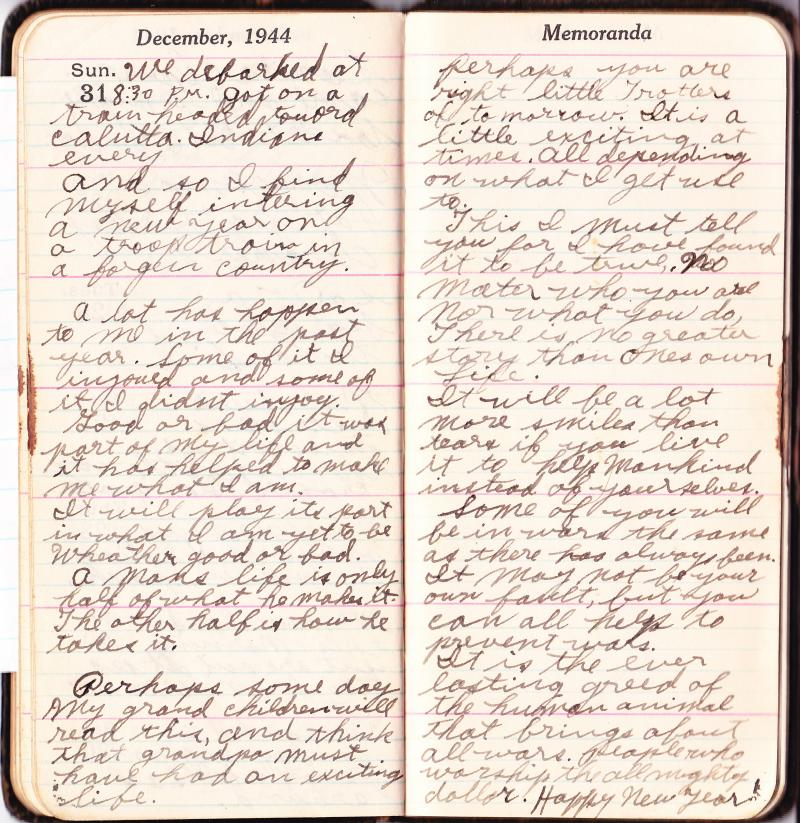 December, 1944
Sun. We debarked at
31 8:30 P.M. got on a
train headed toward
calutta. Indians
every
And so I find
myself intering
a new year on
a troop train in
a forgen country.
A lot has happen
to me in the past
year. Some of it I
injoyed and some of
it I didnt injoy.
Good or bad it was
part of my life and
it has helped to make
me what I am.
It will play its part
in what I am yet to be
Wheather good or bad.
A mans life is only
half of what he makes it.
The other half is how he
takes it.
Perhaps some day
My grand children will
read this, and think
that grandpa must
have had an exciting
life.
Memoranda
perhaps you are
right little Trotters
of tomorrow. It is a
little exciting at
times. All depending
on what I get use
to.
This I must tell
you for I have found
it to be true. No
mater who you are
Nor what you do,
There is no greater
story than ones own
Life.
It will be a lot
more smiles than
tears if you live
it to help Mankind
instead of yourselves.
Some of you will
be in wars the same
as there has always been.
It may not be your
own fault, but you
can all help to
prevent wars.
It is the ever
lasting greed of
the human animal
that brings about
all wars. people who
worship the all mighty
dollor. Happy New Year!